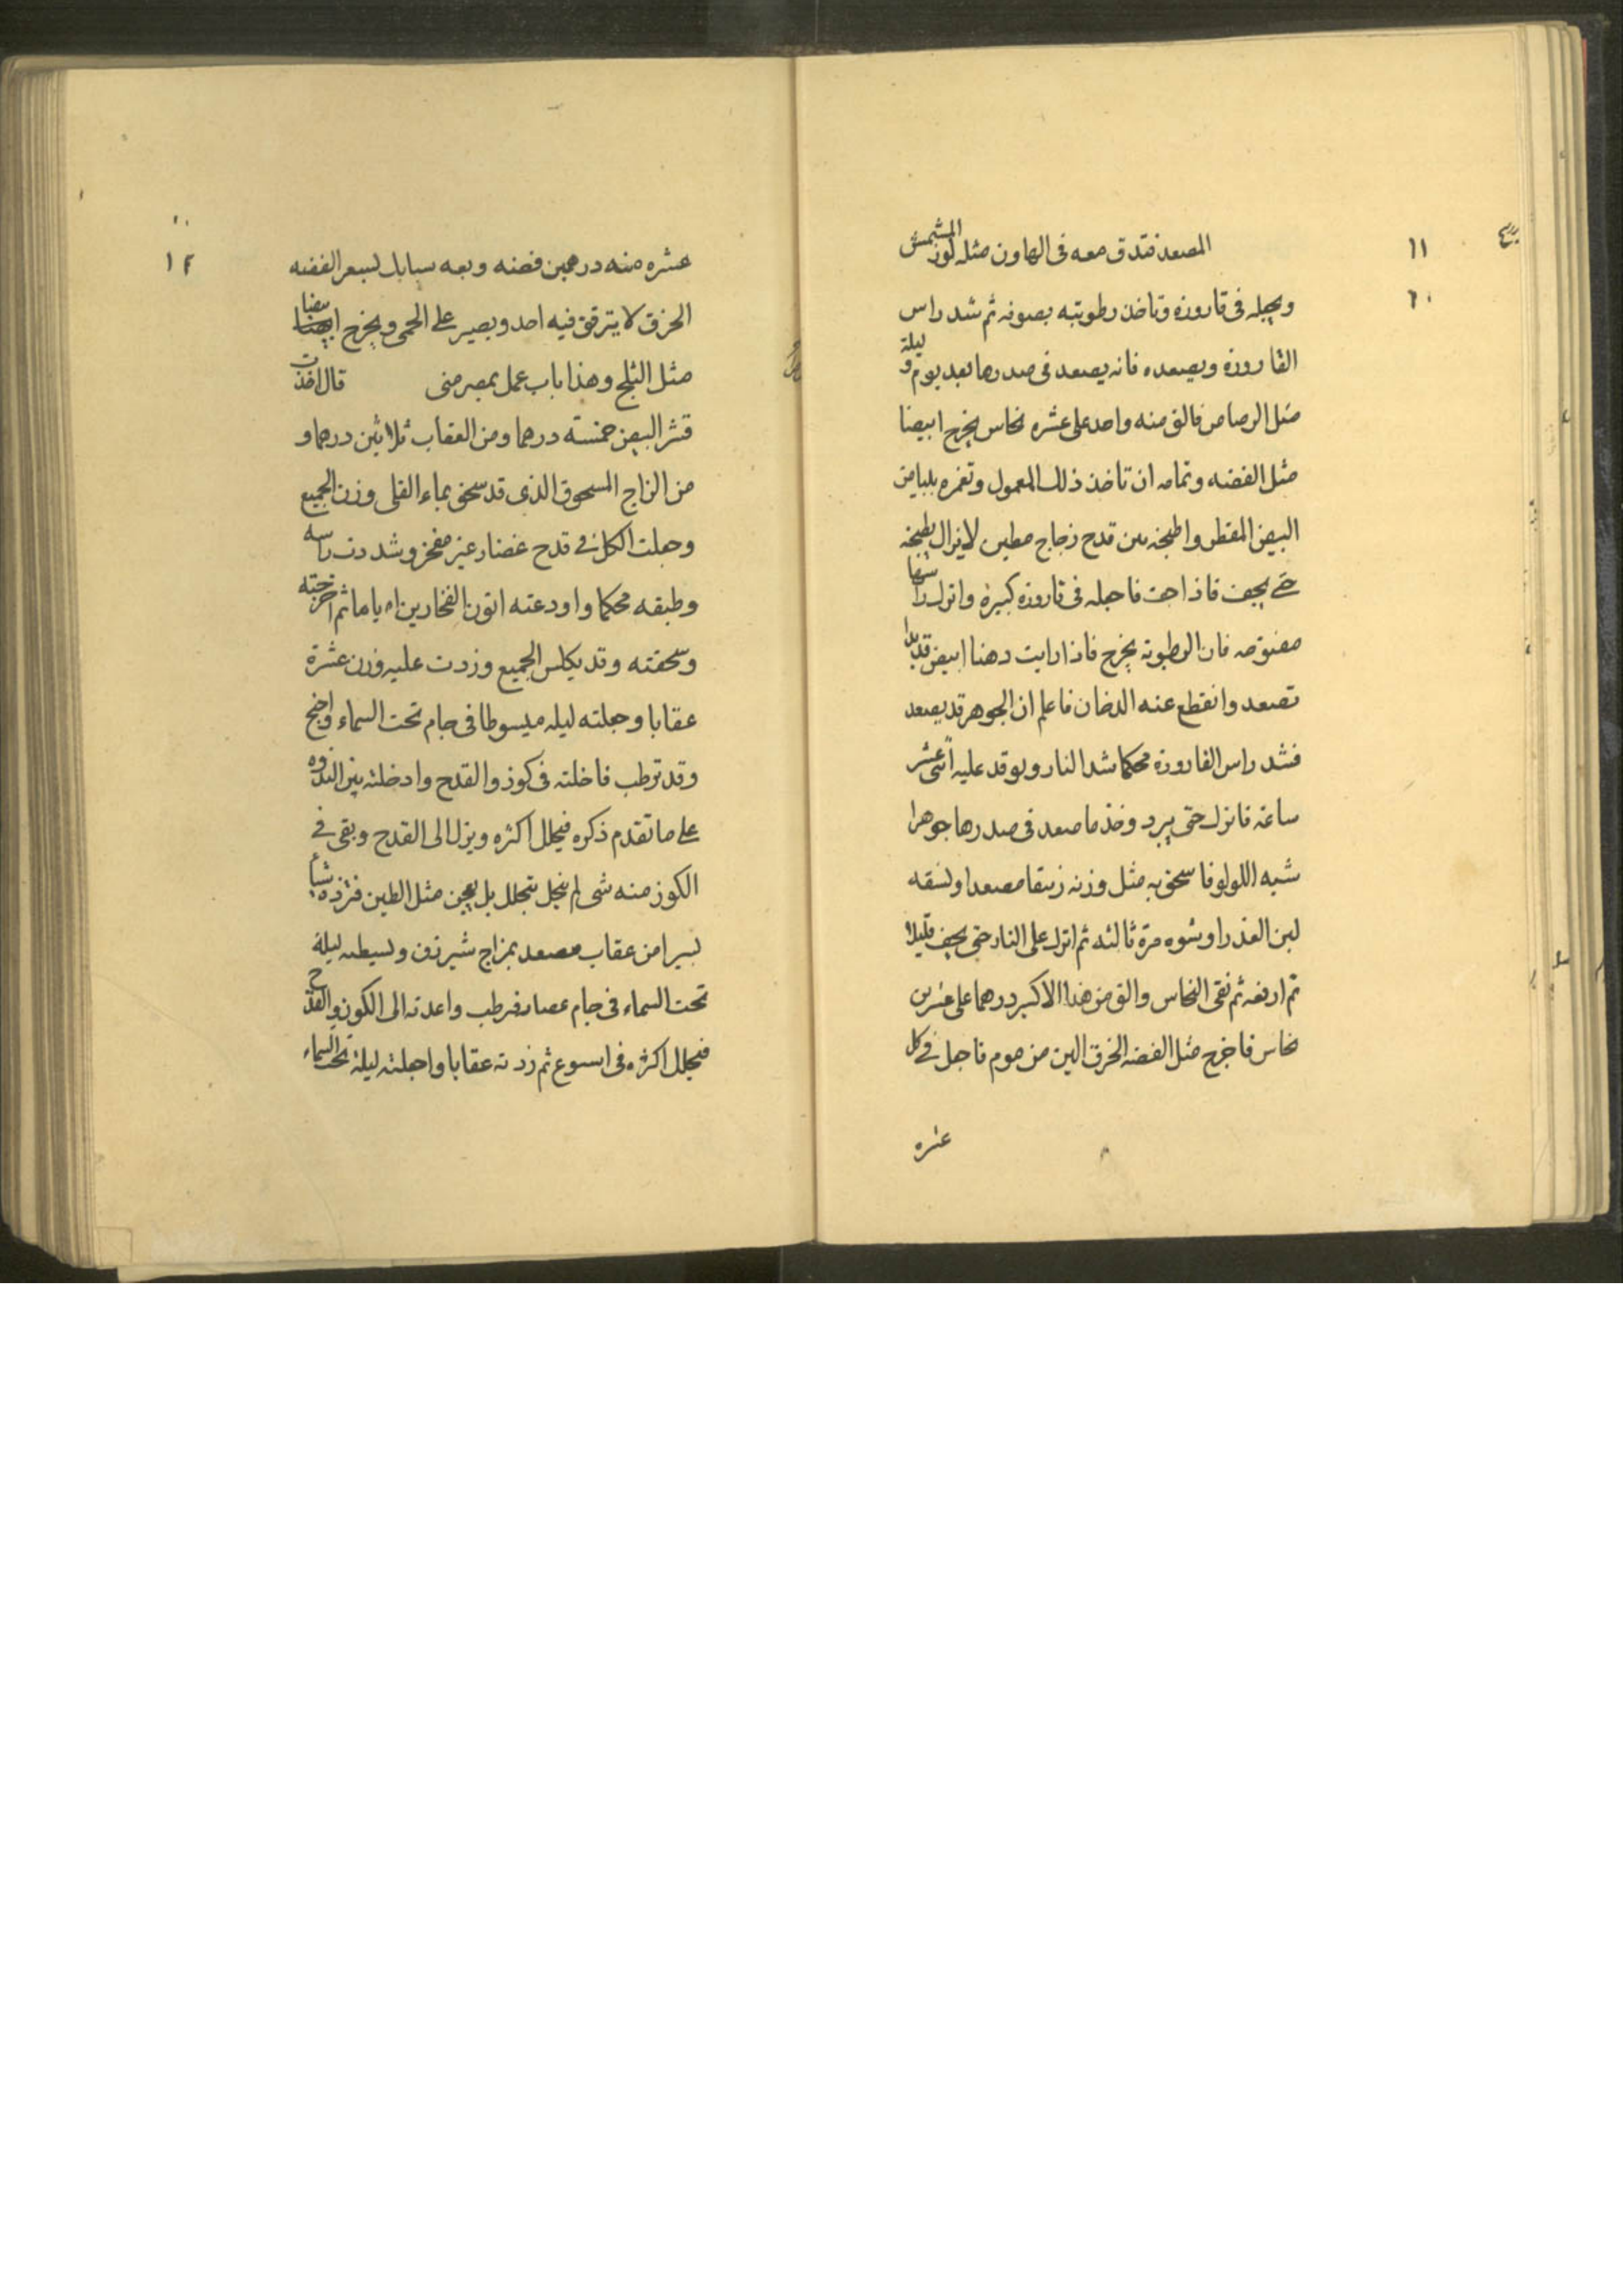 ١١
٦٠
المصعد فتدق معه فى الهاون مثل لوز المشمش
ويجعله فى قاروره وتاخذ رطوبته بصوفه ثم شد راس
القاروره ويصعده فانه يصعد فى صدرها بعد يوم وليلة
مثل الرصاص فالق منه واحد على عشره نحاس يخرج ابيضا
مثل الفضه وتمامه ان تاخذ ذلك المعمول وتغمره ببياض
البيض المقطر واطبخه بين قدح زجاج مطين لا يزال يطبخه
حتى يجف فاذا جف فاجعله فى قاروره كبيرة واترك راسها
مفتوحه فان الرطوبه يخرج فاذا رايت دهنا ابيض قد بدا
تصعد وانقطع عنه الدخان فاعلم ان الجوهر قد يصعد
فشد راس القاروره محكما شد النار ويوقد عليه اثنى عشر
ساعه فاترك حتى يبرد وخذ ما صعد فى صدرها جوهرا
شبه اللولو فاسحق به مثل وزنه زيبقا مصعدا ولسقه
لبن العذرا وشوه مرة ثالثه ثم اترك على النار حتى يجف قليلا
ثم ارفعه ثم نقى النحاس والق من هذا الاكسير درهما على عشرين
نحاس فاخرج مثل الفضه الخرق الين من موم فاجعل فى كل
عشره
١٢
عشره منه درهمين فضه وبعه سبابك لسعر الفضه
الخرق لا يترقق فيه احد ويصير على الحمى ويخرج ابيضا
مثل الثلج وهذا باب عمل بمصر منى قال اخذت
قشر البيض خمسته درهما ومن العقاب ثلاثين درهما و
من الزاج المسحوق الذى قد سحق بماء القلى وزن الجميع
وجعلت الكل فى قدح غضار غير مفخر وشددت راسه
وطبقه محكما واودعته اتون الفخارين اياما ثم اخرجته
وسحقته وقد يكلس الجميع وزدت عليه وزن عشرة
عقابا وجعلته ليله ميسوطا فى جام تحت السماء
وقد ترطب فاخلته فى كوز والقدح وادخلته بئر النداوه
على ما تقدم ذكره فيحلل اكثره وينزل الى القدح وبقى فى
الكوز منه شى لم ينحل يتحلل بل بعجين مثل الطين فتزده شيأ
يسيرا من عقاب مصعد بمزاج شيرزق ولسيطه ليلة
تحت السماء فى جام عصار فرطب واعدته الى الكوز والقدح
فيحلل اكثره فى اسبوع ثم زدته عقابا واجلته ليلة تحت السماء